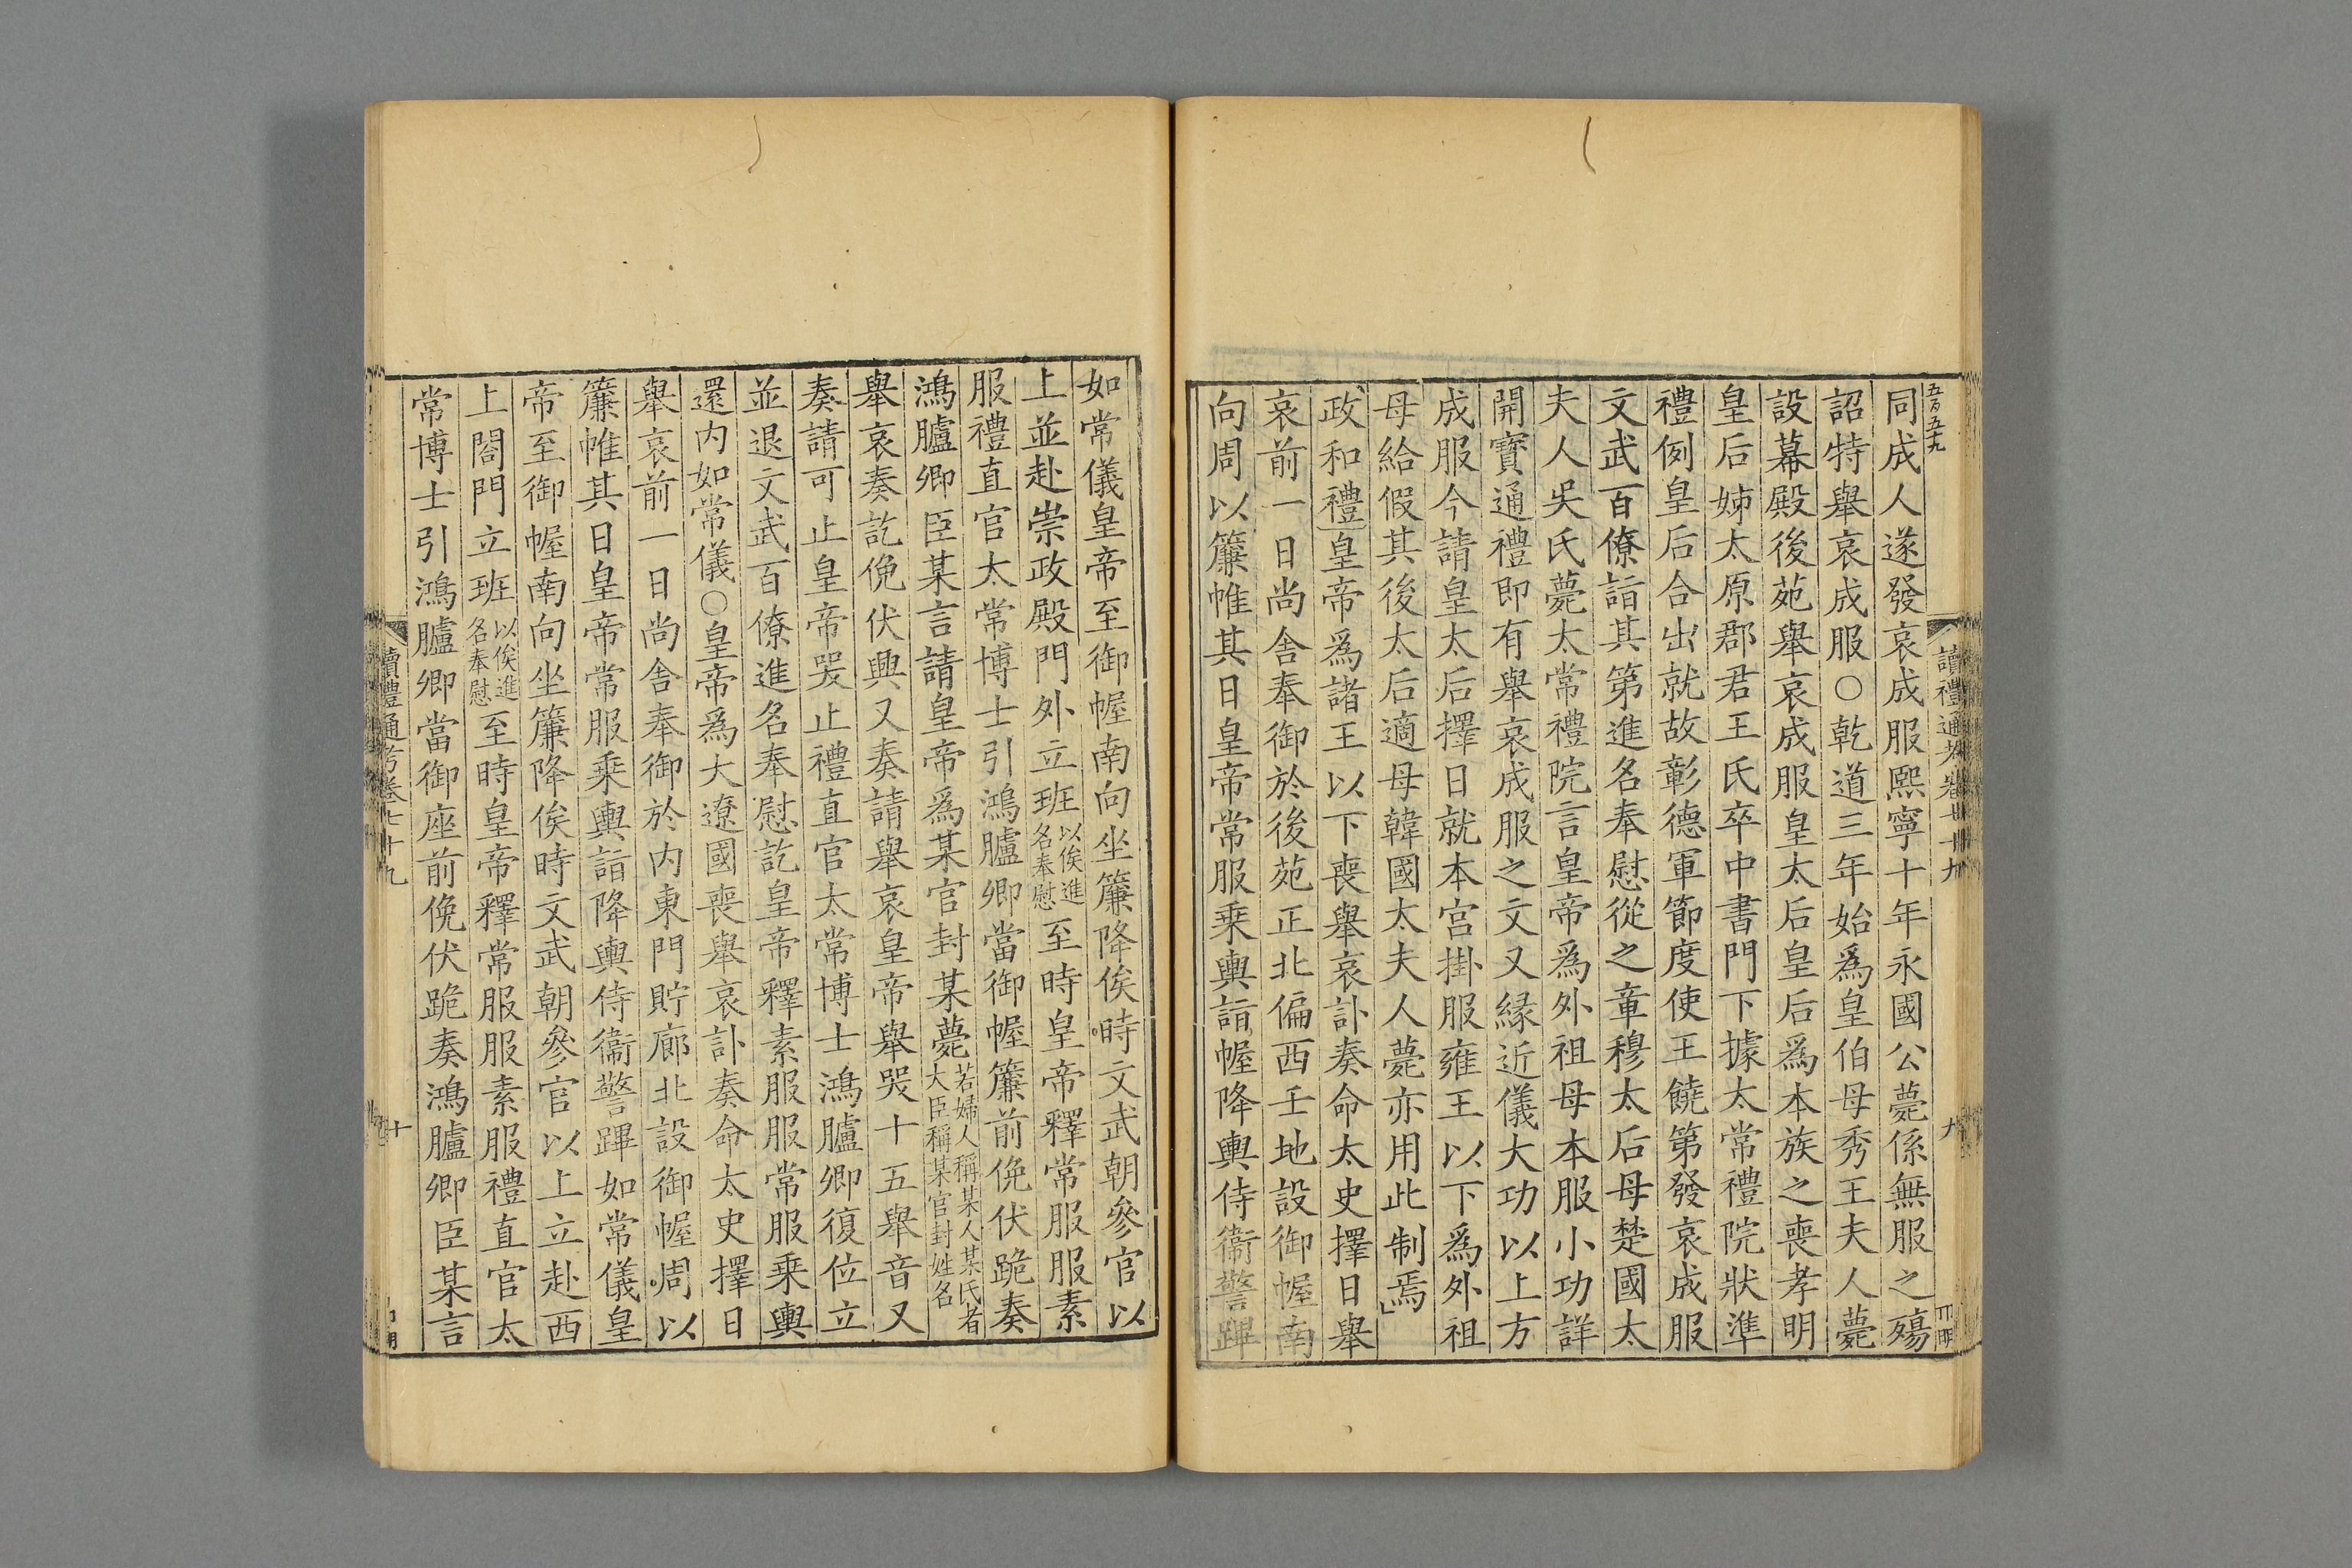 五百五十九
讀禮通考卷七十九
九
同成人遂發哀成服熙寧十年永國公薨係無服之殤
詔特舉哀成服○乾道三年始爲皇伯母秀王夫人薨
設幕殿後苑舉哀成服皇太后皇后爲本族之喪孝明
皇后姊太原郡君王氏卒中書門下據太常禮院狀準
禮例皇后合出就故彰德軍節度使王饒第發哀成服
文武百僚詣其第進名奉慰從之章穆太后母楚國太
夫人吳氏薨太常禮院言皇帝爲外祖母本服小功詳
開寶通禮即有舉哀成服之文又緣近儀大功以上方
成服今請皇太后擇日就本宮掛服雍王以下爲外祖
母給假其後太后適母韓國太夫人薨亦用此制焉
政和禮皇帝爲諸王以下喪舉哀訃奏命太史擇日舉
哀前一日尚舍奉御於後苑正北偏西壬地設御幄南
向周以簾帷其日皇帝常服乘輿詣幄降輿侍衞警蹕
如常儀皇帝至御幄南向坐簾降俟時文武朝參官以
上並赴崇政殿門外立班以俟進名奉慰至時皇帝釋常服服素
服禮直官太常博士引鴻臚卿當御幄簾前俛伏跪奏
鴻臚卿臣某言請皇帝爲某官封某薨若婦人稱某人某氏者大臣稱某官封姓名
舉哀奏訖俛伏興又奏請舉哀皇帝舉哭十五舉音又
奏請可止皇帝哭止禮直官太常博士鴻臚卿復位立
並退文武百僚進名奉慰訖皇帝釋素服服常服乘輿
還內如常儀○皇帝爲大遼國喪舉哀訃奏命太史擇日
舉哀前一日尚舍奉御於內東門貯廊北設御幄周以
簾帷其日皇帝常服乘輿詣降輿侍衞警蹕如常儀皇
帝至御幄南向坐簾降俟時文武朝參官以上立赴西
上閤門立班以俟進名奉慰至時皇帝釋常服服素服禮直官太
常博士引鴻臚卿當御座前俛伏跪奏鴻臚卿臣某言
讀禮通考卷七十九
十